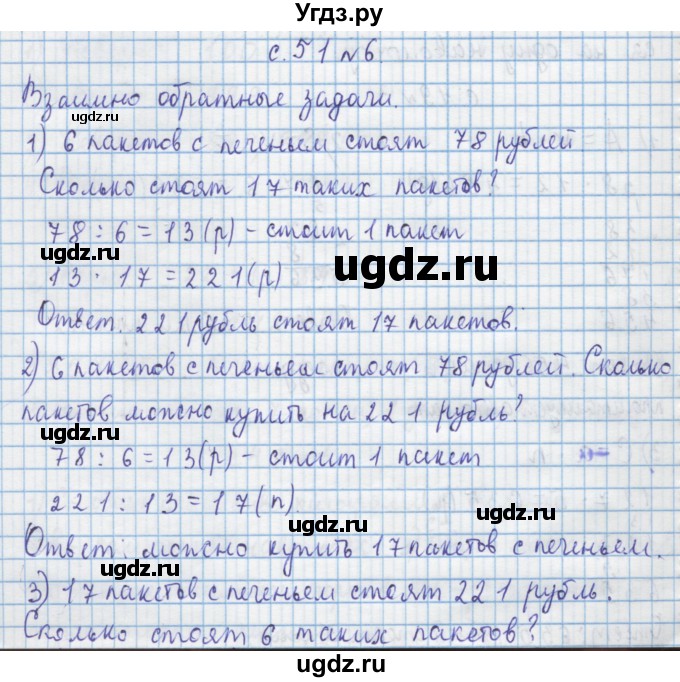 Угдз.ру
с. 51 №6.
Взаимно обратные задачи.
1) 6 пакетов с печеньем стоят 78 рублей
ugdz.ru
Сколько стоят 17 таких пакетов?
78 : 6 = 13(р) - стоит 1 пакет
ugdz.ru
ugdz.ru
13 · 17 = 221(р)
Ответ. 221 рубль стоят 17 пакетов.
ugdz.ru
2) 6 пакетов с печеньем стоят 78 рублей. Сколько
пакетов можно купить на 221 рубль?
ugdz.ru
78 : 6 = 13(р) - стоит 1 пакет
221 : 13 = 17(п).
ugdz.ru
Ответ: можно купить 17 пакетов с печеньем.
ugdz.ru
3) 17 пакетов с печеньем стоят 221 рубль.
Сколько стоят 6 таких пакетов?
ugdz.ru